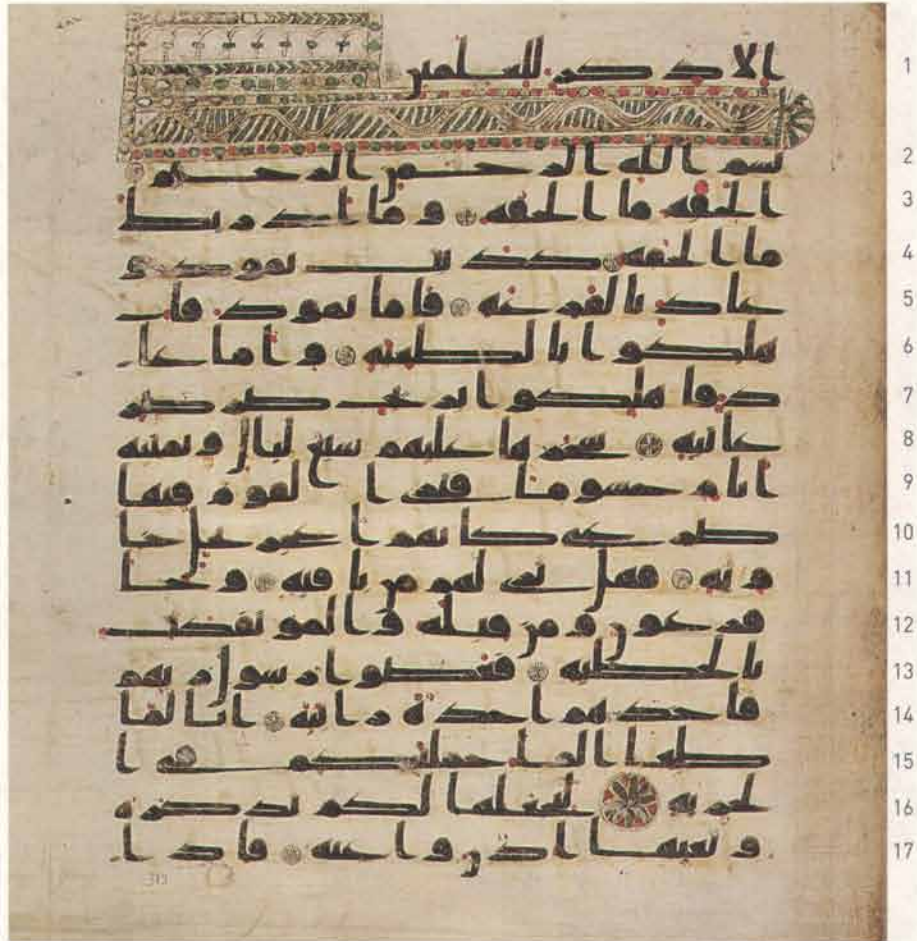 الا ذكر للعلمين 1
بسم الله الرحمن الرحيم 2
الحقه ما الحقه وما ادريك 3
ما الحقه كذبت ثمود و 4
عاد بالقرعه فاما ثمود فا 5
هلكوا بالطغيه واما عا 6
د فاهلكوا بريح صرصر 7
عاتيه سخرها عليهم سبع ليال وثمنيه 8
ايام حسوما فترى القوم فيها 9
صرعى كانهم اعجز نخل خا 10
ويه فهل ترى لهم من باقيه وجا 11
فرعون ومن قبله والموتفكت 12
بالخطيه فعصوا رسول ربهم 13
فاخذهم اخذة رابيه انا لما 14
طغا الما حملنكم في ا 15
لجريه لنجعلها لكم تذكره 16
وتعيها اذن وعيه فاذا 17
313